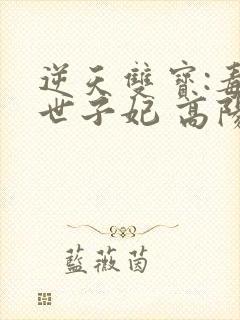 逆天雙寶:毒
世子妃 高陽
藍薇茵